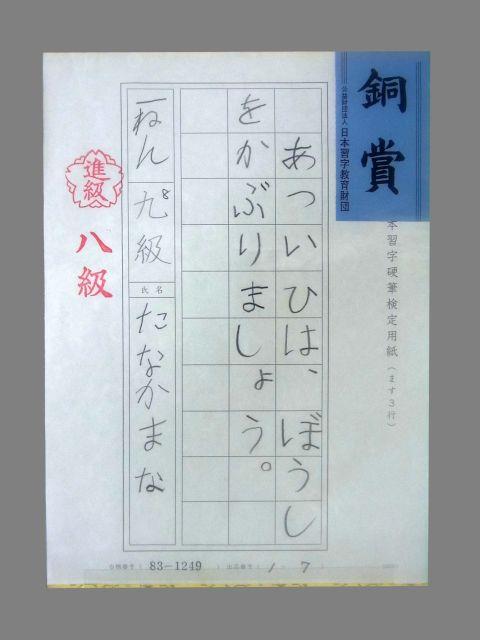 銅賞
公益財団法人 日本習字教育財団
本習字硬筆検定用紙(ます3行)
あついひは、ぼうし
をかぶりましょう。
一ねん 九級
氏名 たなかまな
進級
八級
83-1249
1 - 7